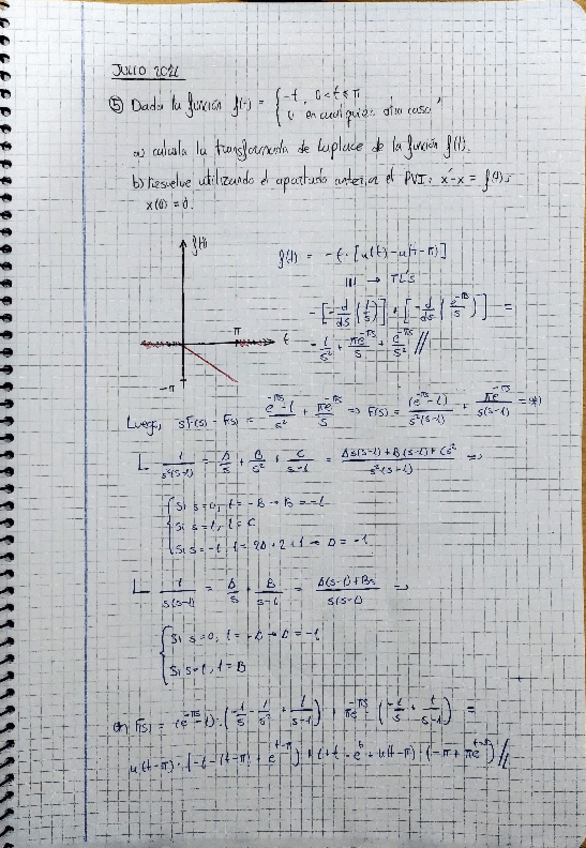 JULIO 2021
⑤ Dada la función f(t) = { -t, 0<t≤π
0 en cualquier otro caso,
a) calcula la transformada de Laplace de la función f(t).
b) resuelve utilizando el apartado anterior el PVI: x'-x = f(t);
x(0) = 0.
f(t)
f(t) = -t·[u(t)-u(t-π)]
→ TL's
-[-d/ds(1/s)] + [-d/ds(e^-πs/s)] =
π t
-1/s² + πe^-πs/s + e^-πs/s² //
-π
Luego, sF(s) - F(s) = e^-πs-1/s² + πe^-πs/s => F(s) = (e^-πs-1)/s²(s-1) + πe^-πs/s(s-1) = (*)
1/s²(s-1) = A/s + B/s² + C/s-1 = As(s-1)+B(s-1)+Cs²/s²(s-1) =>
Si s=0, 1 = -B → B = -1
Si s=1, 1=C
Si s=-1, 1 = 2A+2+1 → A = -1
1/s(s-1) = A/s + B/s-1 = A(s-1)+Bs/s(s-1) =>
Si s=0, 1 = -A → A = -1
Si s=1, 1=B
(*) F(s) = (e^-πs-1)·(-1/s - 1/s² + 1/s-1) + πe^-πs·(-1/s + 1/s-1) =
u(t-π)·(-1-(t-π)+e^t-π) + 1+t-e^t + u(t-π)·(-π+πe^t-π) //